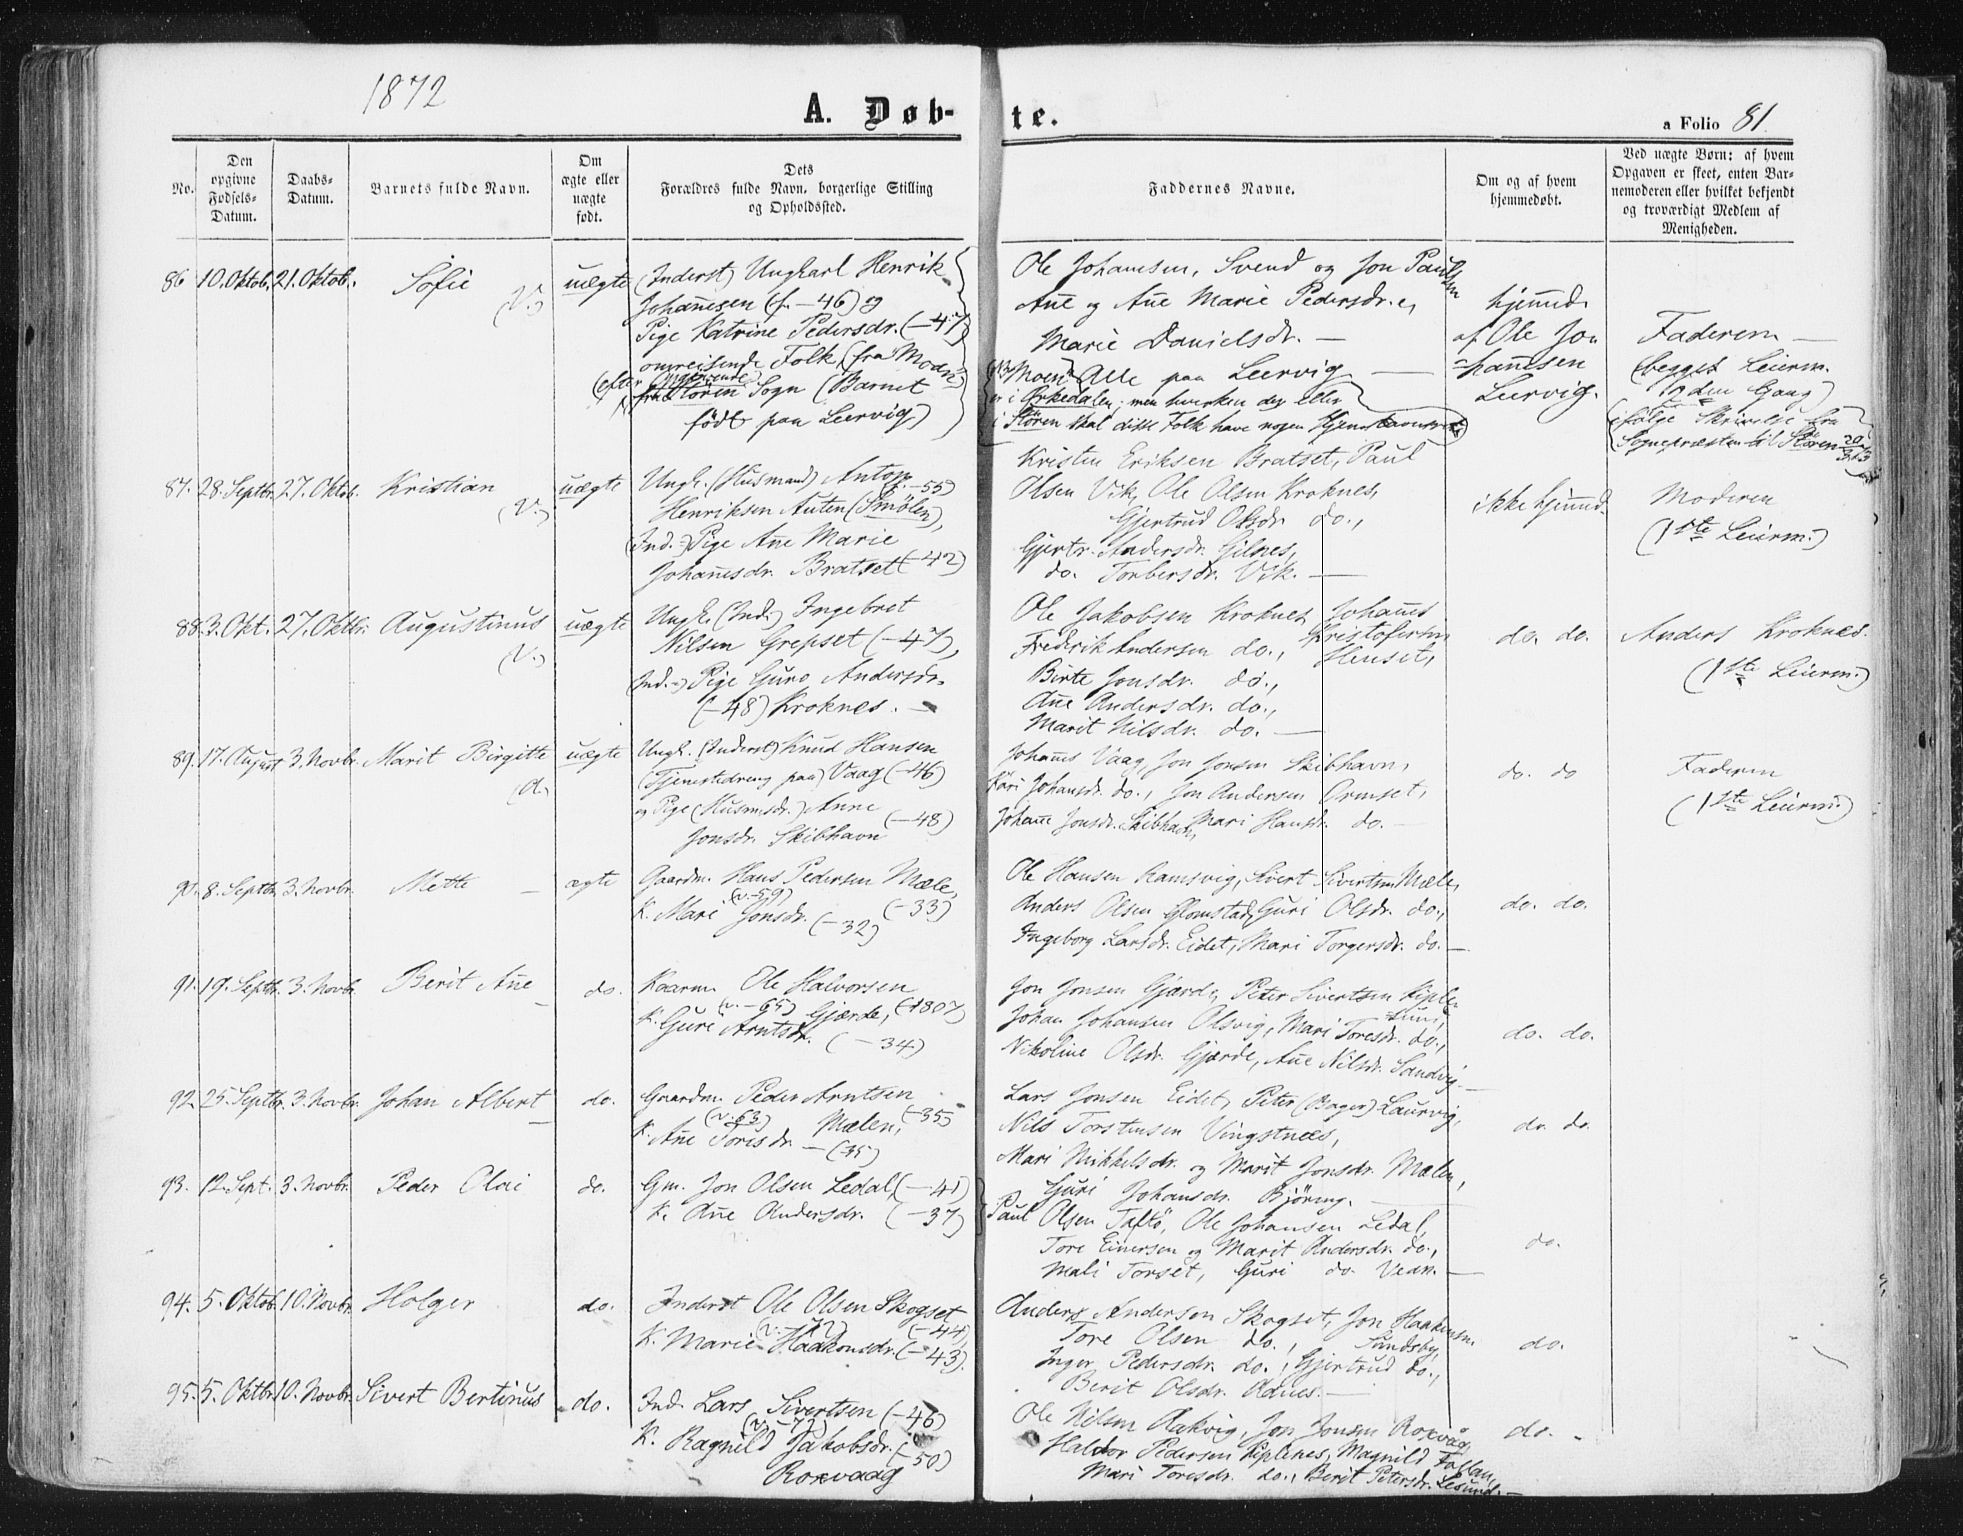 1872
A. Døb-
te.
a Folio 81.
No.
Den opgivne Fødsels-Datum.
Daabs-Datum.
Barnets fulde Navn.
Om ægte eller uægte født.
Dets Forældres fulde Navn, borgerlige Stilling og Opholdssted.
Faddernes Navne.
Om og af hvem hjemmedøbt.
Ved uægte Børn: af hvem Opgaven er skeet, enten Barnemoderen eller hvilket bekjendt og troværdigt Medlem af Menigheden.
86 10. Oktob. 21. Oktob. Sofie (V.) uægte
(Inderst) Ungkarl Henrik
Johañesen (f. -46) og
Pige Katrine Pedersdr. (-47)
omreisende Folk, (fra Moen
(efter Opgivende)
fra Støren Sogn (Barnet
født paa Leervig)
Ole Johansen, Svend og Jon Paulsen
Añe og Añe Marie Pedersdr.,
Marie Danielsdr. —
Alle paa Leervig —
(NB Moen er i Orkedalen; men hverken der eller
i Støren skal disse Folk have nogen Hjemstavnsret)
hjemmed.
af Ole Jo
hañesen
Leervig.
Faderen —
(begges Leierm.
1 den Gang)
(ifølge Skrivelse fra
Sognepræsten til Støren 20/3 73
87. 28. Septbr. 27. Oktob. Kristian (V.) uægte
Ungk. (Husmand) Anton (-55)
Henriksen Auten (Smølen),
(Ind.-) Pige Añe Marie
Johañesdr. Bratset (-42)
Kristen Eriksen Bratset, Paul
Olsen Vik, Ole Olsen Kroknes,
Gjertrud Olsdr. do.,
Gjertr. Andersdr. Gilnes,
do. Torbersdr. Vik. —
ikke hjemmd.
Moderen
(1ste Leierm.)
88. 3. Okt. 27. Oktbr. Augustinus (V.) uægte
Ungk. (Ind.) Ingebret
Nilsen Grepset (-47),
(Ind.-) Pige Guro Andersdr.
(-48) Kroknes. —
Ole Jakobsen Kroknes, Johañes
Frederik Andersen do., Kristofersen Henset,
Birte Jonsdr. do.,
Añe Andersdr. do.,
Marit Nilsdr. do. —
do. do.
Anders Kroknes.
(1ste Leierm.)
89. 17. August 3. Novbr. Marit Birgitte (d. uægte
Ungk. (Inderst) Knud Hansen
(Tjenestedreng paa) Vaag (-46)
og Pige (Husmdsdr.) Anne (-48)
Jonsdr. Skibhavn
Johañes Vaag, Jon Jonsen Skibhavn,
Kari Johansdr. do., Jon Andersen Ormset,
Johañe Jonsdr. Skibhavn, Mari Hansdr. do. —
do. do
Faderen
(1ste Leierm.)
90. 8. Septbr. 3. Novbr. Mette — ægte
Gaardm. Hans Pedersen Mæle,
(v. -59) (-33)
K. Mari Jonsdr. (-32)
Ole Hansen Ramsvig, Sivert Sivertsen Mæle,
Anders Olsen Glomstad, Guri Olsdr. do.,
Ingeborg Larsdr. Eidet, Mari Torgersdr. do. —
do. do.
91. 19. Septbr. 3. Novbr. Berit Añe — do.
Kaarm. Ole Halvorsen
(v. -65) Gjærde, (-1807)
K. Guri Arntsdr. (-34)
Jon Jonsen Gjærde, Peter Sivertsen
Johan Johansen Olsvig, Mari Toresdr. do.,
Nikoline Olsdr. Gjærde, Añe Nilsdr. Sandvig —
do. do.
92. 25. Septbr. 3. Novbr. Johan Albert — do.
Gaardm. Peder Arntsen
(v. 63) Mælen, (-35)
K. Añe Toresdr. — (35)
Lars Jonsen Eidet, Peter (Bager) Laurvig,
Nils Torstensen Vingstnæs,
Mari Mikkelsdr. og Marit Jonsdr. Mælen,
Guri Johansdr. Bjøring. —
do. do.
93. 12. Sept. 3. Novbr. Peder Olai do.
Gm. Jon Olsen Ledal, (-41)
K. Añe Andersdr. (-37)
Paul Olsen Taftø, Ole Johansen Ledal,
Tore Einersen og Marit Andersdr. do.,
Mali Torset, Guri do. Vean. —
do.
94. 5. Oktob. 10. Novbr. Holger do.
Inderst Ole Olsen Skogset
(v. -72) (-44),
K. Marie Haakonsdr. (-43).
Anders Andersen Skogset, Jon Haakensen
Tore Olsen do., Sundsby,
Inger Pedersdr. do., Gjertrud do.,
Berit Olsdr. Adnes. —
do.
95. 5. Oktbr. 10. Novbr. Sivert Bertinus do.
Ind. Lars Sivertsen (-46)
(v. -72)
K. Ragnild Jakobsdr. (-50)
Roxvaag
Ole Nilsen Aakvig, Jon Jonsen Roxvåg,
Haldor Pedersen Kiplenes, Magnild Follan,
Mari Toresdr. do., Berit Petersdr. Lesund. —
do. -